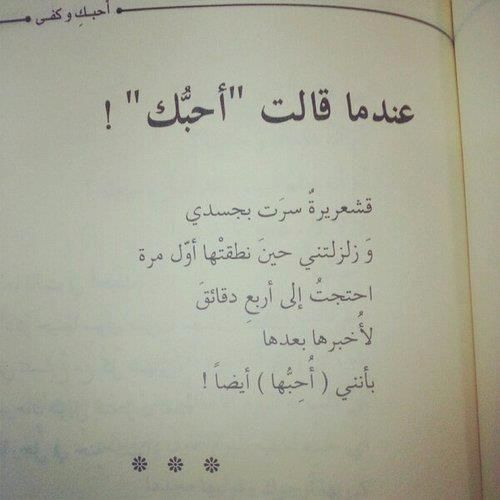 أحبكِ وكفى
عندما قالت "أحبُّك" !
قشعريرةٌ سرَت بجسدي
وَ زلزلتني حينَ نطقتْها أوّل مرة
احتجتُ إلى أربعِ دقائقَ
لأُخبرها بعدها
بأنني ( أُحِبُّها ) أيضاً !